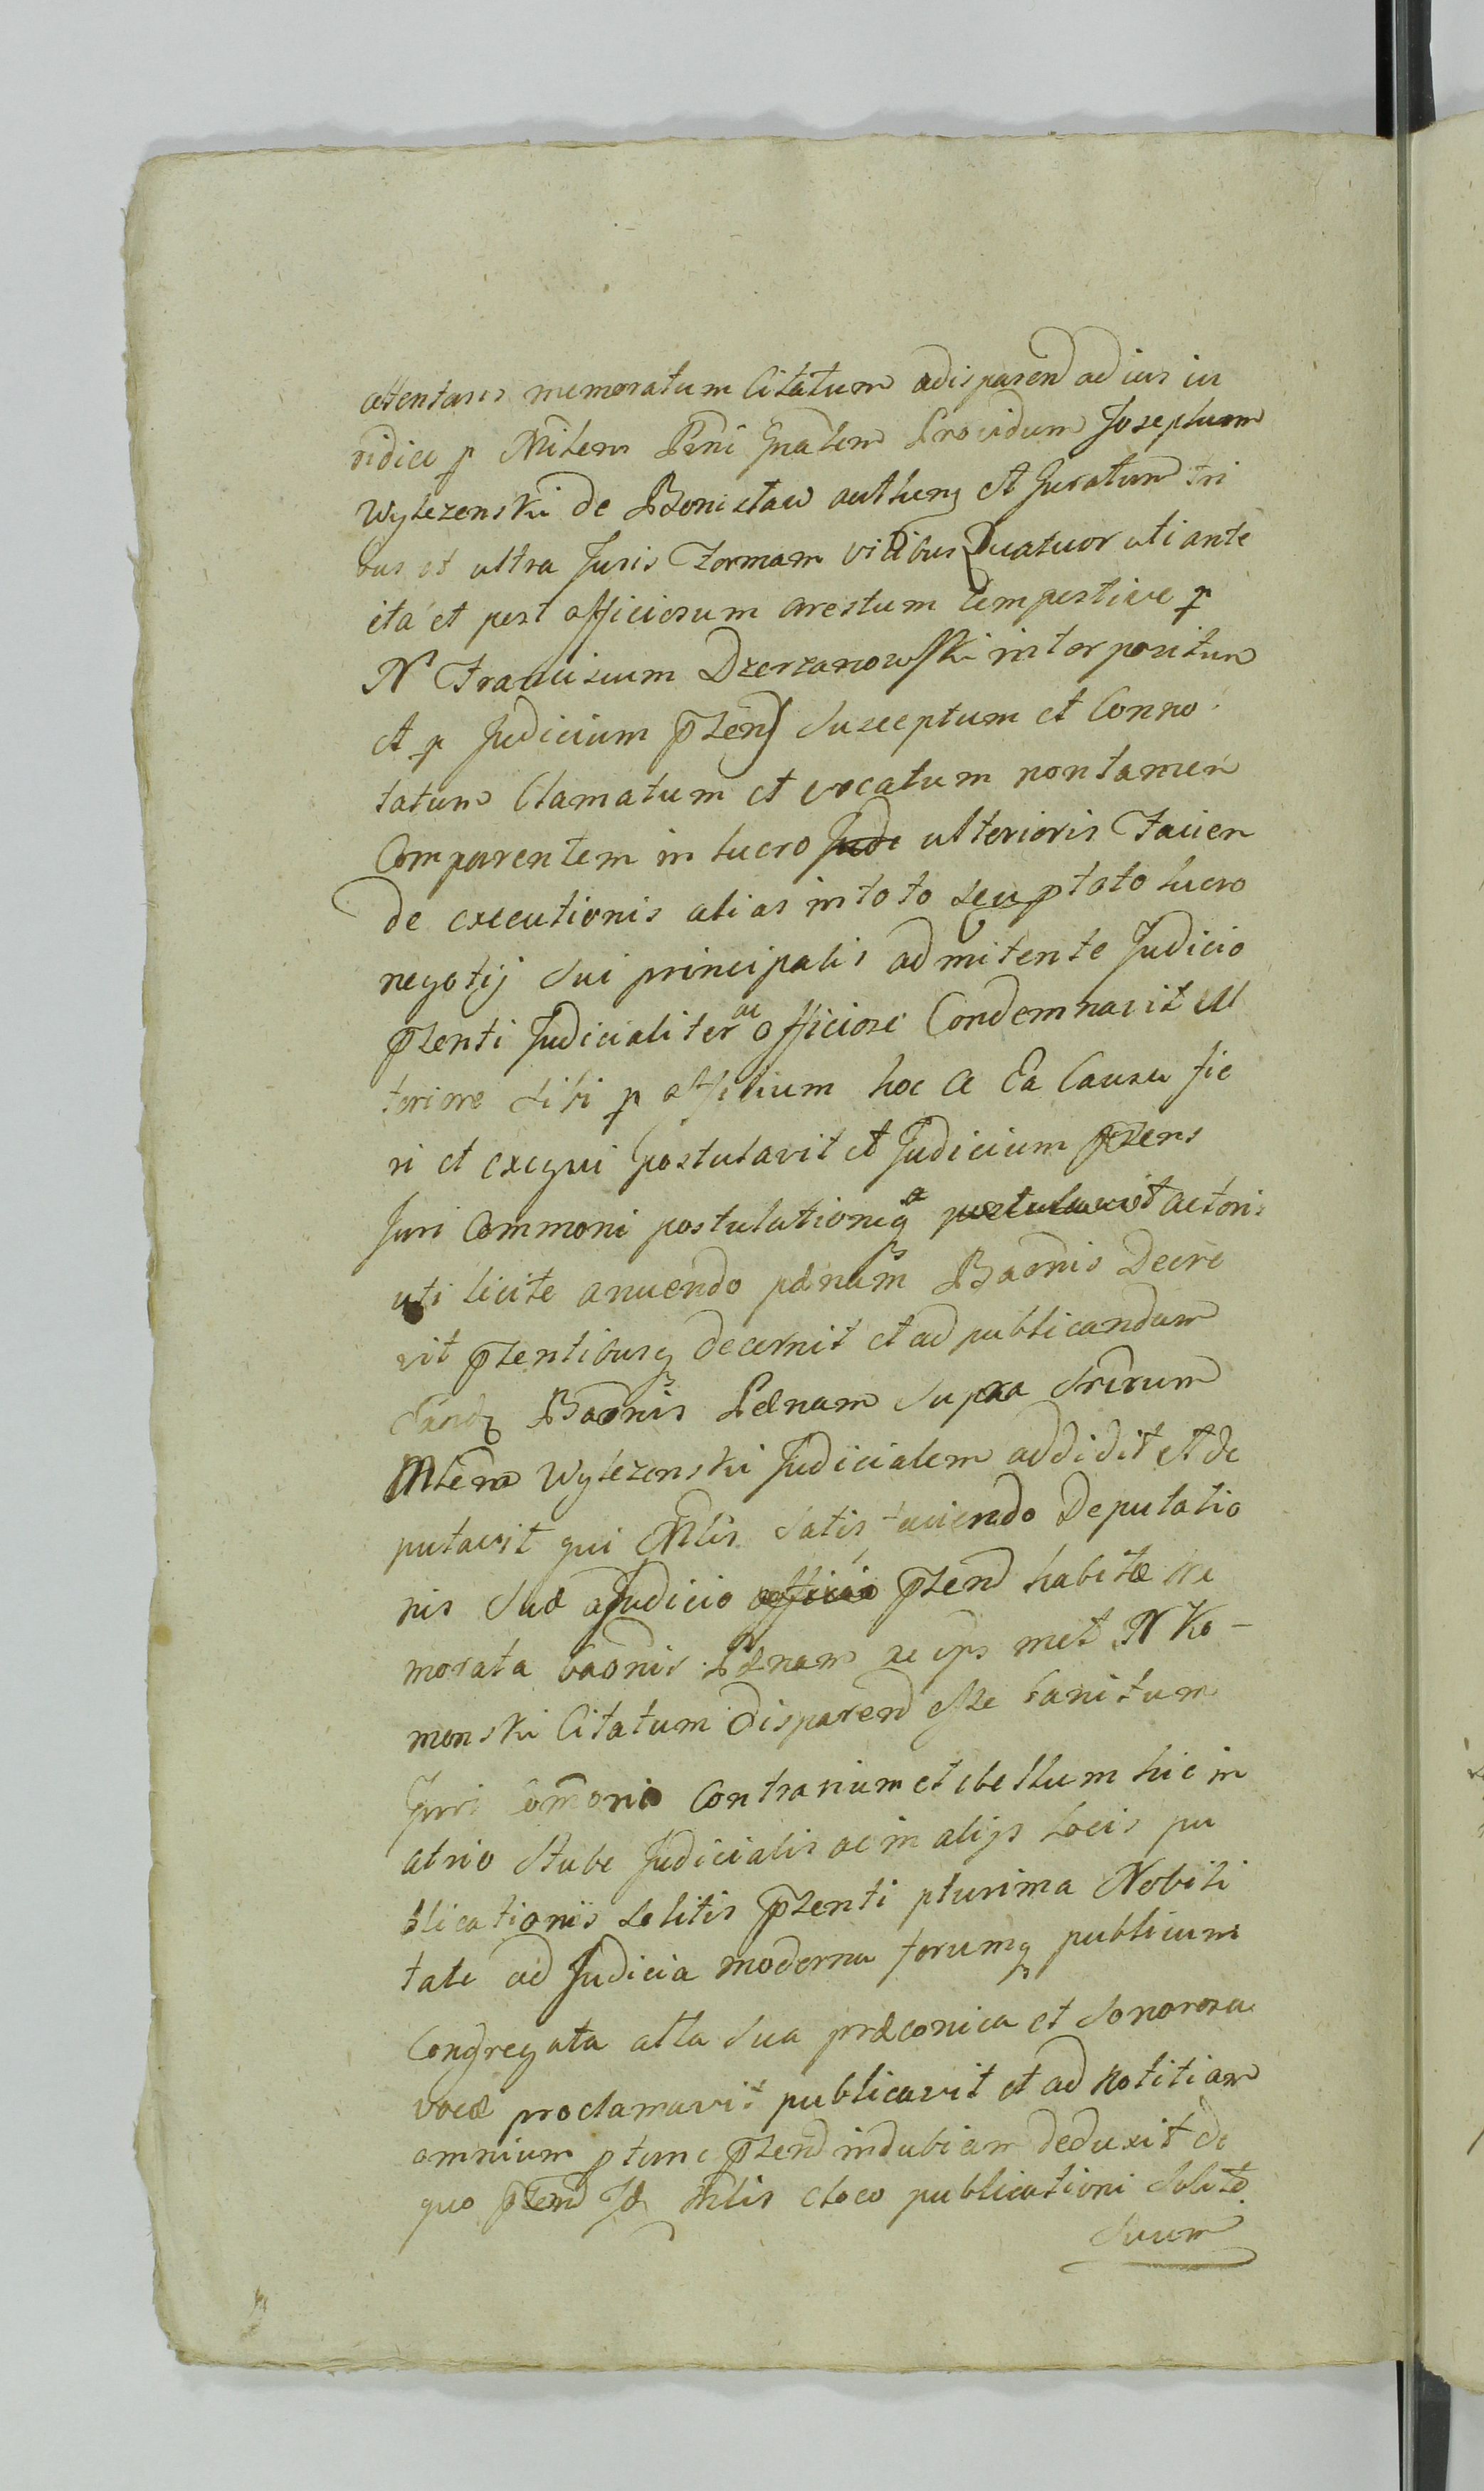 attentans memoratum Citatum adisparend ad ius iu
ridice p Mitem Rni Gnalem Providum Josephum
Wylezenski de Bonislaw authens et Juratum tri
bus et ultra Juris Formam vicibus Quatuor uti ante
ita et post officiosum arestum tempestive p
N Franciscum Dzerzanowski interpositum
et p Judicium pzens Susceptum et Conno
tatum Clamatum et vocatum non tamen
Comparentem in lucro ulterioris Facien
de executionis alias in toto seu ptato lucro
negotij Sui principalis admitente Judicio
pzenti Judicialiter ac officiose Condemnavit Ul
teriore sibi p officium hoc a Ea Causa fie
ri et exequi postulavit et Judicium pzens
Juri Commoni postulationiq a postulavit actoris
uti licite anuendo pænam Baonis Decre
vit pzentibusq decernit et ad publicandam
Eand Baonis Pænam Supra Srirum
Mlem Wylezenski Judicialem addidit et de
putavit qui Mlis Satis faciendo Deputatio
nis Suæ a Judicio officio pzend habitæ me
morata baonis Pænam ac ips met N Ko-
monski Citatum disparend esse banitum
Juri Comoni Contrarium et ebellum hic in
atrio Stube Judicialis ac in alijs Locis pu
blicationis Solitis pzenti plurima Nobili
tate ad Judicia moderna forumq publicum
Congregata alta Sua præconica et Sonorosa
voce proclamavit publicavit et ad Notitiam
omnium ptunc pzend indubiam deduxit de
quo pzend Id Mlis eloco publicationi Solito
Suum